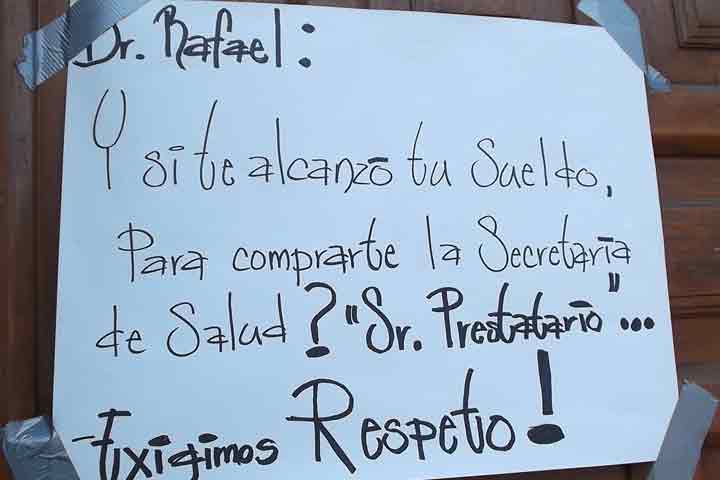 Dr. Rafael:
Y si te alcanzó tu Sueldo,
Para comprarte la Secretaría
de Salud? "Sr. Prestatario"...
-Exigimos Respeto!